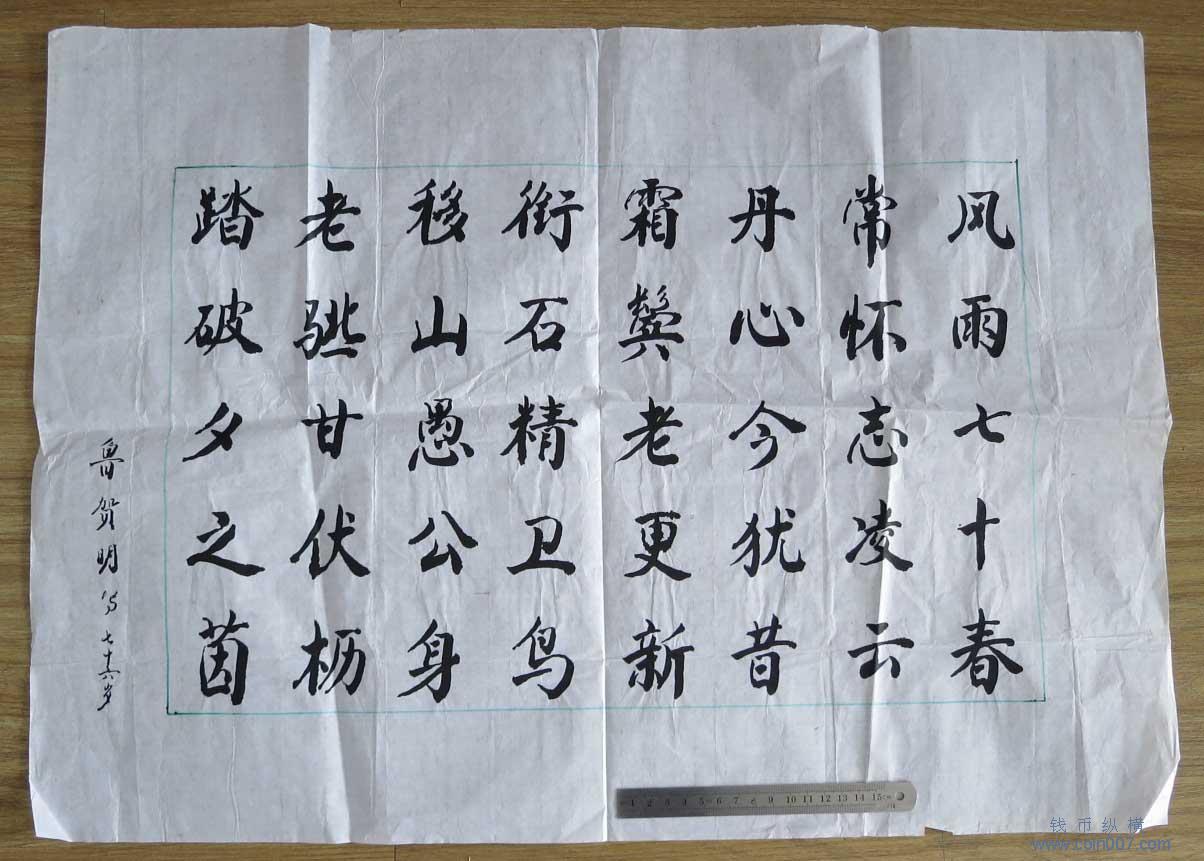 风雨七十春
常怀志凌云
丹心今犹昔
霜鬓老更新
衔石精卫鸟
移山愚公身
老骥甘伏枥
踏破夕之茵
鲁贺明写七十六岁
1 2 3 4 5 6 7 8 9 10 11 12 13 14 15
钱币纵横
www.coin007.com